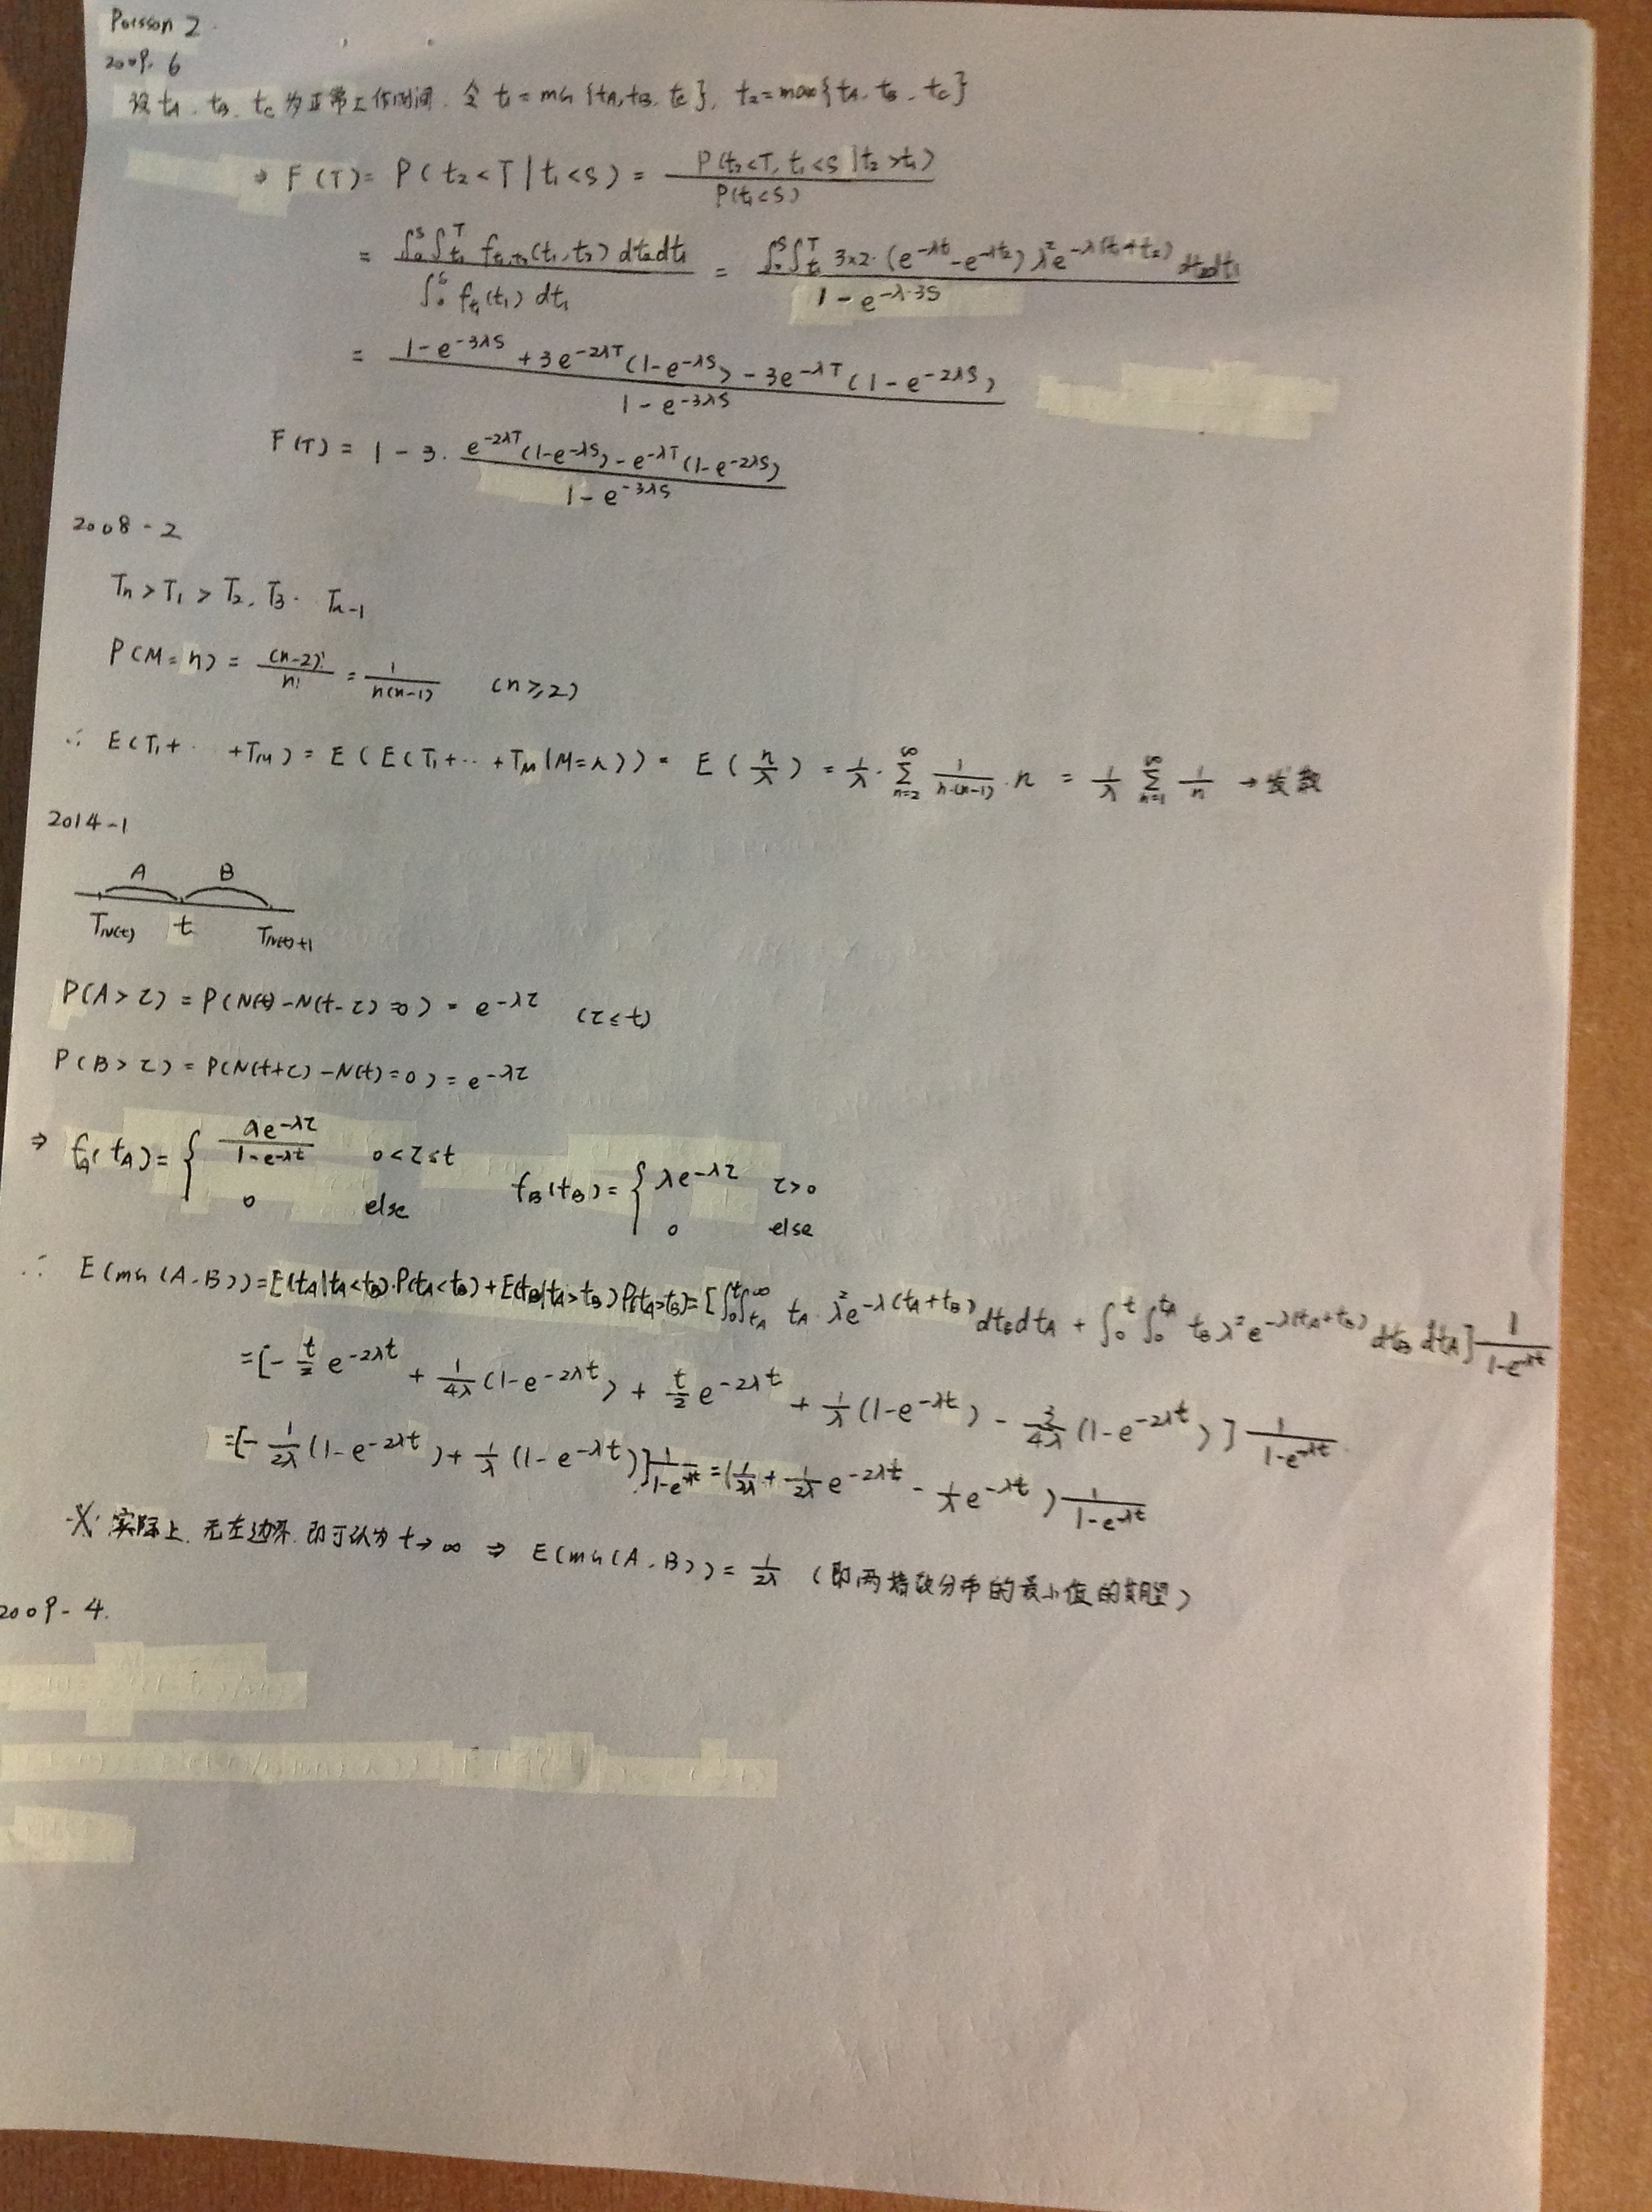 Poisson 2
2009. 6
设 tA. tB. tC 为正常工作时间. 令 t₁ = min {tA, tB, tC}, t₂ = max {tA. tB. tC}
⇒ F(T) = P( t₂ < T | t₁ < S ) = P(t₂<T, t₁<S | t₂>t₁) / P(t₁<S)
= ∫₀^S ∫_{t₁}^T f_{t₁,t₂}(t₁, t₂) dt₂dt₁ / ∫₀^S f_{t₁}(t₁) dt₁ = ∫₀^S ∫_{t₁}^T 3×2·(e^{-λt₁} - e^{-λt₂}) λ²e^{-λ(t₁+t₂)} dt₂dt₁ / 1 - e^{-λ·3S}
= 1 - e^{-3λS} + 3e^{-2λT}(1-e^{-λS}) - 3e^{-λT}(1 - e^{-2λS}) / 1 - e^{-3λS}
F(T) = 1 - 3 · e^{-2λT}(1-e^{-λS}) - e^{-λT}(1-e^{-2λS}) / 1 - e^{-3λS}
2008 - 2
Tn > T₁ > T₂. T₃ · Tn-1
P(M = n) = (n-2)! / n! = 1 / n(n-1) (n ≥ 2)
∴ E(T₁ + ·· + T_M) = E(E(T₁ + ·· + T_M | M=n)) = E(n/λ) = 1/λ · Σ_{n=2}^∞ 1/n·(n-1) · n = 1/λ Σ_{n=1}^∞ 1/n → 发散
2014 - 1
A B
T_{N(t)} t T_{N(t)+1}
P(A > τ) = P(N(t) - N(t-τ) = 0) = e^{-λτ} (τ ≤ t)
P(B > τ) = P(N(t+τ) - N(t) = 0) = e^{-λτ}
⇒ f_A(tA) = { λe^{-λτ} / 1-e^{-λt} 0<τ≤t
0 else f_B(tB) = { λe^{-λτ} τ>0
0 else
∴ E(min(A, B)) = E(tA|tA<tB)·P(tA<tB) + E(tB|tA>tB)P(tA>tB) = [∫₀^t ∫_{tA}^∞ tA · λ²e^{-λ(tA+tB)} dtB dtA + ∫₀^t ∫₀^{tA} tB λ²e^{-λ(tA+tB)} dtB dtA] 1 / 1-e^{-λt}
= [- t/2 e^{-2λt} + 1/4λ (1-e^{-2λt}) + t/2 e^{-2λt} + 1/λ (1-e^{-λt}) - 3/4λ (1-e^{-2λt})] 1 / 1-e^{-λt}
= [- 1/2λ (1-e^{-2λt}) + 1/λ (1-e^{-λt})] 1 / 1-e^{-λt} = (1/2λ + 1/2λ e^{-2λt} - 1/λ e^{-λt}) 1 / 1-e^{-λt}
※ 实际上. 无左边界. 即可认为 t→∞ ⇒ E(min(A, B)) = 1/2λ (即两指数分布的最小值的期望)
2009 - 4.